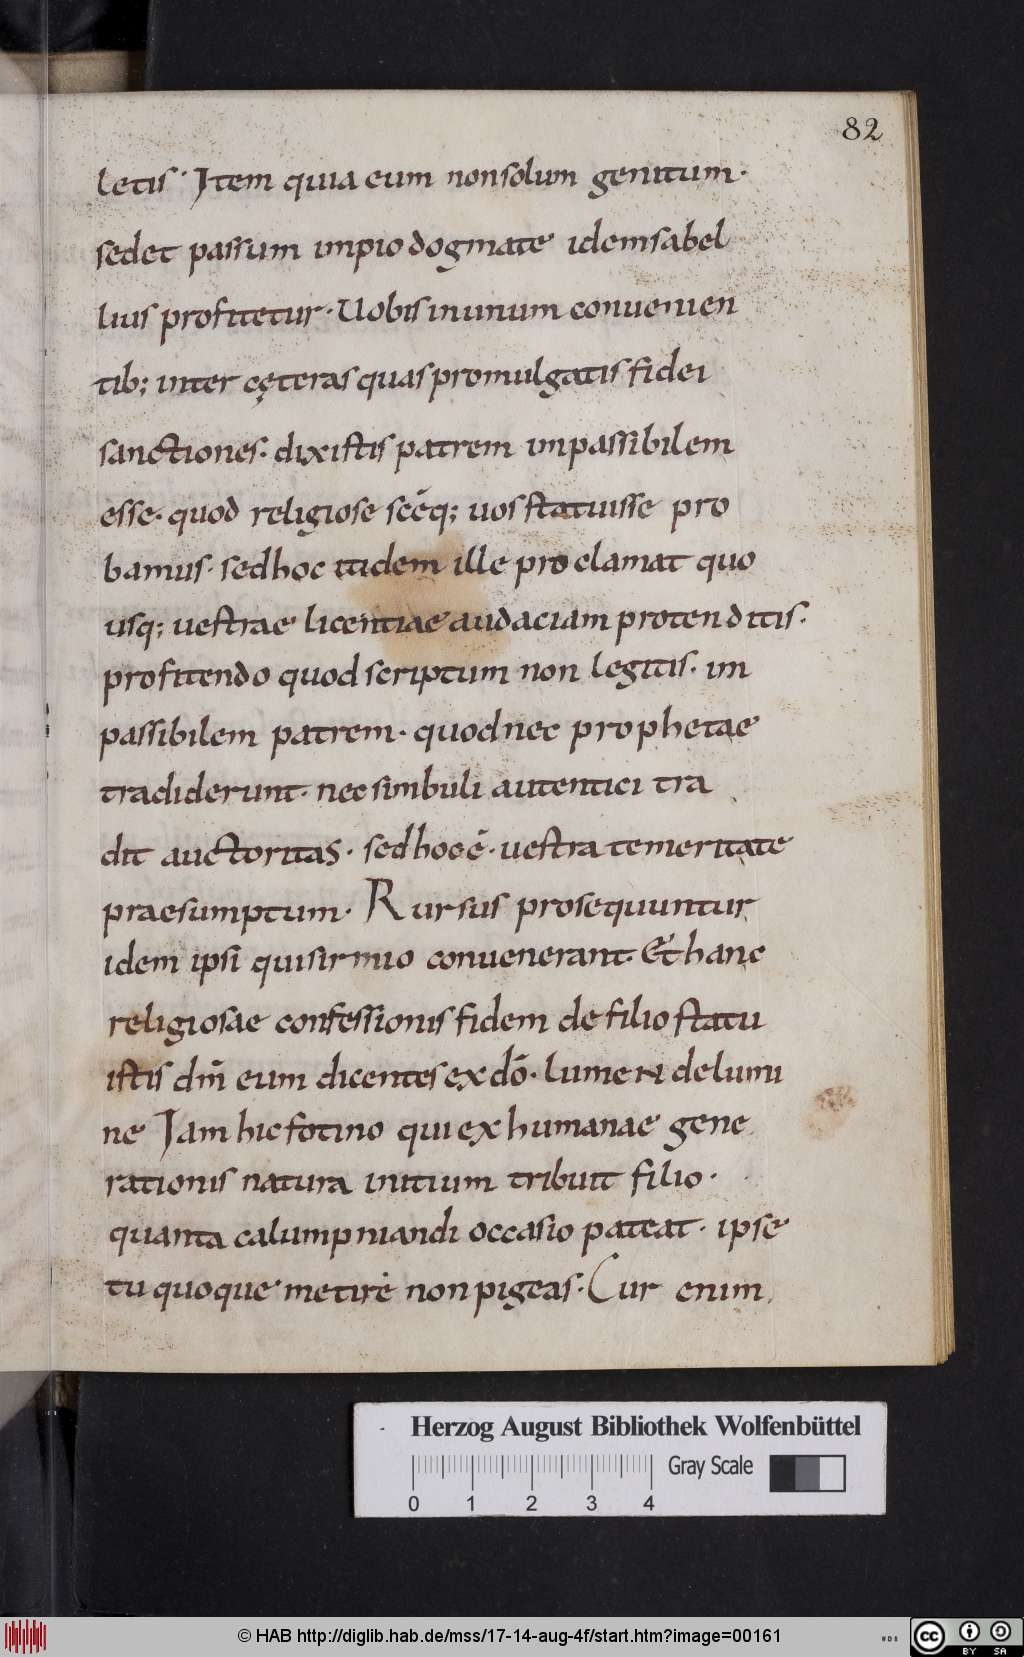 82
letis· Item quia eum nonsolum genitum·
sedet passum impio dogmate idemsabel
lius profitetur· Uobis inunum conuenien
tib; inter cęteras quas promulgatis fidei
sanctiones· dixistis patrem impassibilem
esse· quod religiose sc̄eq; uos statuisse pro
bamus· sedhoc itidem ille proclamat quo
usq; uestrae licentiae audaciam protenditis·
profitendo quod scriptum non legitis· im
passibilem patrem· quodnec prophetae
tradiderunt· nec simbuli autentici tra
dit auctoritas· sedhoc ē· uestra temeritate
praesumptum· Rursus prosequuntur
idem ipsi quisirmio conuenerant· Et hanc
religiosae confessionis fidem de filio statu
istis dm̄ eum dicentes ex dō· lumen delumi
ne Iam hic fotino qui ex humanae gene
rationis natura initium tribuit filio·
quanta calumpniandi occasio pateat· ipse
tu quoque metire non pigeas· Cur enim
Herzog August Bibliothek Wolfenbüttel
0 1 2 3 4
Gray Scale
© HAB http://diglib.hab.de/mss/17-14-aug-4f/start.htm?image=00161
WDB
cc BY SA